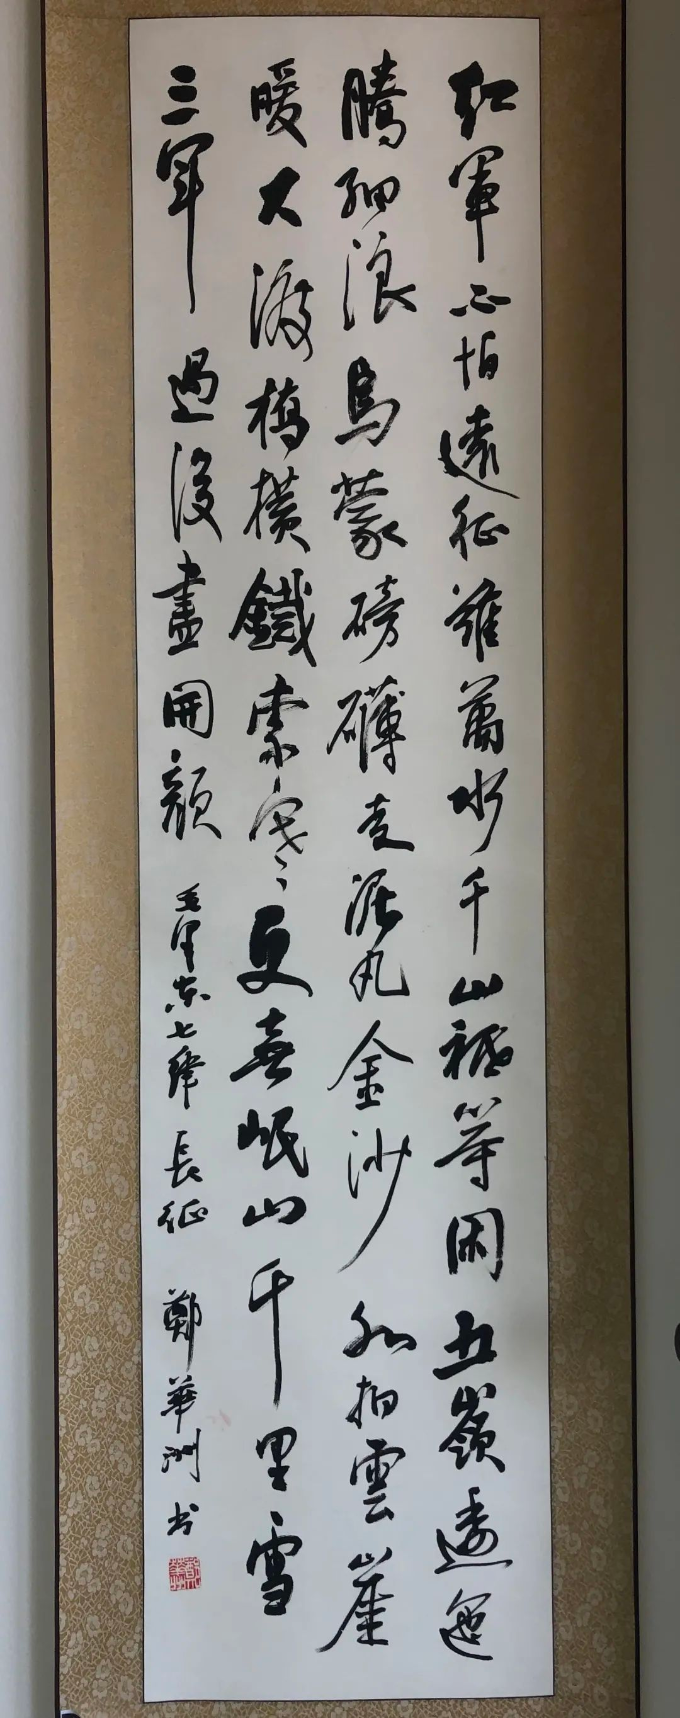 紅軍不怕遠征難萬水千山祗等閑五嶺逶迤
騰細浪烏蒙磅礴走泥丸金沙水拍雲崖
暖大渡橋橫鐵索寒更喜岷山千里雪
三軍過後盡開顏 毛澤東七律長征 鄭華洲书